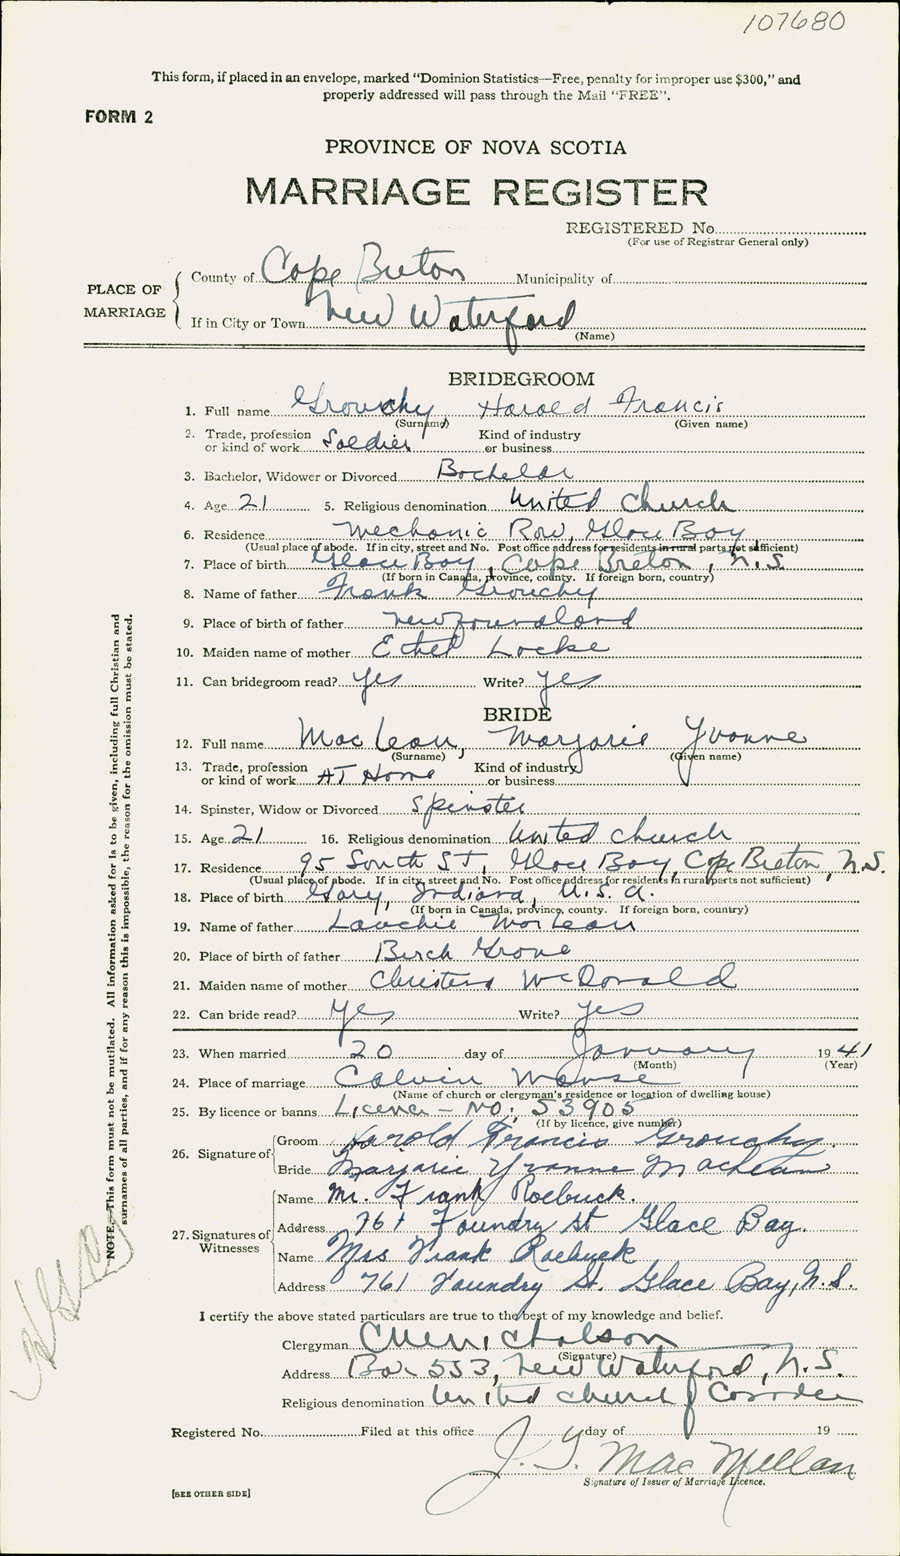 107680
This form, if placed in an envelope, marked "Dominion Statistics—Free, penalty for improper use $300," and
properly addressed will pass through the Mail "FREE".
FORM 2
PROVINCE OF NOVA SCOTIA
MARRIAGE REGISTER
REGISTERED No.
(For use of Registrar General only)
PLACE OF MARRIAGE
County of Cape Breton Municipality of
If in City or Town New Waterford
(Name)
BRIDEGROOM
1. Full name Grouchy, Harold Francis
(Surname) (Given name)
2. Trade, profession or kind of work Soldier Kind of industry or business
3. Bachelor, Widower or Divorced Bachelor
4. Age 21 5. Religious denomination United Church
6. Residence Mechanic Row, Glace Bay
(Usual place of abode. If in city, street and No. Post office address for residents in rural parts not sufficient)
7. Place of birth Glace Bay, Cape Breton, N.S.
(If born in Canada, province, county. If foreign born, country)
8. Name of father Frank Grouchy
9. Place of birth of father Newfoundland
10. Maiden name of mother Ethel Locke
11. Can bridegroom read? Yes Write? Yes
BRIDE
12. Full name MacLean, Marjorie Yvonne
(Surname) (Given name)
13. Trade, profession or kind of work At Home Kind of industry or business
14. Spinster, Widow or Divorced Spinster
15. Age 21 16. Religious denomination United Church
17. Residence 95 South St, Glace Bay, Cape Breton, N.S.
(Usual place of abode. If in city, street and No. Post office address for residents in rural parts not sufficient)
18. Place of birth Gary, Indiana, U.S.A.
(If born in Canada, province, county. If foreign born, country)
19. Name of father Lauchie MacLean
20. Place of birth of father Birch Grove
21. Maiden name of mother Christena McDonald
22. Can bride read? Yes Write? Yes
23. When married 20 day of January 1941
(Month) (Year)
24. Place of marriage Calvin Manse
(Name of church or clergyman's residence or location of dwelling house)
25. By licence or banns Licence - No; 53905
(If by licence, give number)
26. Signature of
Groom Harold Francis Grouchy.
Bride Marjorie Yvonne MacLean
27. Signatures of Witnesses
Name Mr. Frank Roebuck.
Address 761 Foundry St Glace Bay.
Name Mrs Frank Roebuck
Address 761 Foundry St. Glace Bay, N.S.
I certify the above stated particulars are true to the best of my knowledge and belief.
Clergyman Nicholson
(Signature)
Address Box 553, New Waterford, N.S.
Religious denomination United Church of Canada
Registered No. Filed at this office day of 19
J. MacMillan
Signature of Issuer of Marriage Licence.
[SEE OTHER SIDE]
NOTE.—This form must not be mutilated. All information asked for is to be given, including full Christian and
surnames of all parties, and if for any reason this is impossible, the reason for the omission must be stated.